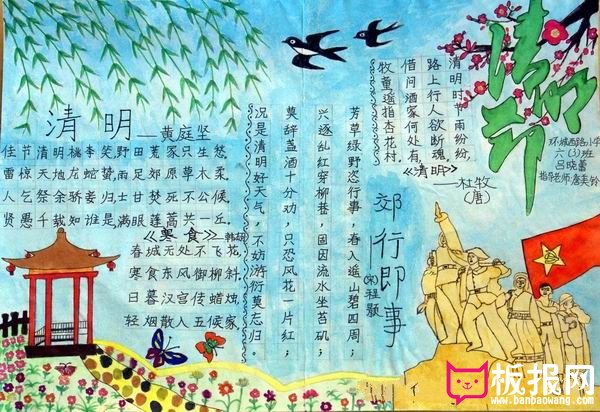 清明节
环城西路小学
吕晓蕾
指导老师:唐美铃
清明时节雨纷纷,
路上行人欲断魂。
借问酒家何处有,
牧童遥指杏花村。
《清明》
—杜牧
(唐)
郊行即事
(宋)程颢
芳草绿野恣行事,春入遥山碧四周;
兴逐乱红穿柳巷,固因流水坐苔矶;
莫辞盏酒十分劝,只恐风花一片红;
况是清明好天气,不妨游衍莫忘归。
清明—黄庭坚
佳节清明桃李笑,野田荒冢只生愁。
雷惊天地龙蛇蛰,雨足郊原草木柔。
人乞祭余骄妾归,士甘焚死不公候。
贤愚千载知谁是,满眼蓬蒿共一丘。
《寒食》—韩翃
春城无处不飞花,
寒食东风御柳斜。
日暮汉宫传蜡烛,
轻烟散入五候家
板报网
www.banbaowang.com